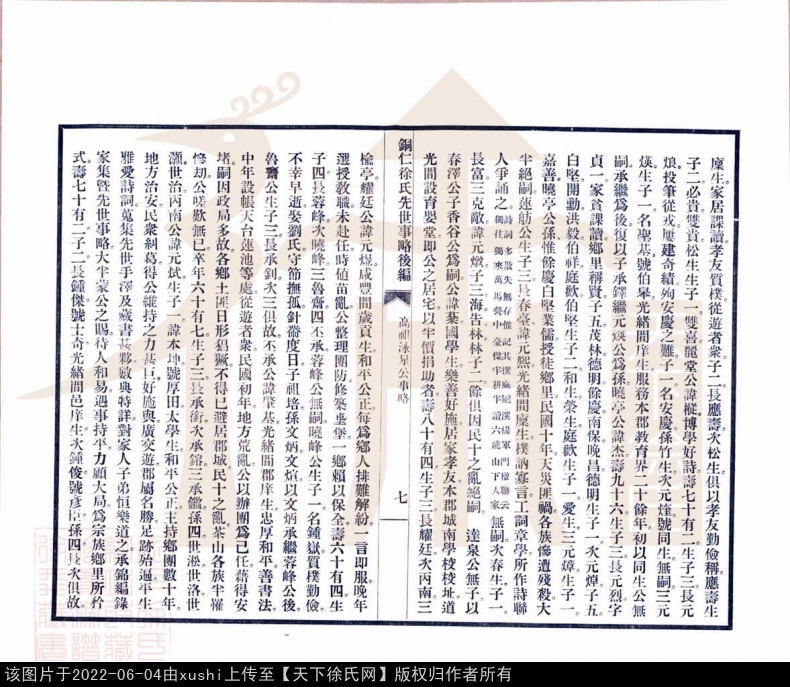 廩生家居課讀孝友質樸從遊者衆子二長應壽次松生俱以孝友勤儉稱應壽生
子二必貴雙貴松生生子一雙喜龍堂公諱樅博學好詩壽七十有二生子三長元
烺投筆從戎屢建奇績殉安慶之難子一名安慶孫竹生次元煃號同生無嗣三元
煐生子一名壆基號伯皋光緒間庠生服務本郡教育界二十餘年初以同生公無
嗣承繼爲後復以子承鐸繼元煐公爲孫曉亭公諱杰壽九十六生子三長元烈字
貞一家貧課讀鄉里稱賢子五茂林德明餘慶南保晚昌德明生子一次元焯子五
白堅開勳洪毅伯祥庭歡伯堅生子二和生榮生庭歡生子一愛生三元煒生子一
嘉善曉亭公孫惟餘慶白堅業儒授徒鄉里民國十年天災匪禍各族慘遭殘殺大
半絕嗣蓮舫公生子三長春臺諱元熙光緒間廩生樸訥寡言工詞章學所作詩聯
人爭誦之詩詞多散失無存惟記其撰 溪協軍門樓聯云獨往獨來萬馬營中豪傑半耕半讀六龍山下人家無嗣次春生子一
長富三克敵諱元燉子三海吉林林子二餘俱因民十之亂絕嗣 達泉公無子以
春澤公子香谷公爲嗣公諱 國學生樂善好施居家孝友本郡城南學校校址道
光間設育嬰堂即公之居宅以半價捐助者壽八十有四生子三長耀廷次丙南三
銅仁徐氏先世事略後編
高祖泳星公事略
七
榆亭耀廷公諱元焜咸豐間歲貢生和平公正每爲鄉人排難解紛一言即服晚年
選授教職未赴任時值苗亂公整理團防修築堡一鄉賴以保全壽六十有四生
子四長蓉峰次曉峰三魯齋四丕承蓉峰公無嗣曉峰公生子一名鍾嶽質樸勤儉
不幸早逝娶劉氏守節撫孤針黹度日子祖培孫文炳文煊以文炳承繼蓉峰公後
魯齋公生子三長承釗次三俱故丕承公諱肇基光緒間郡庠生忠厚和平善書法
中年設帳天台蓮池等處從遊者衆民國初年地方荒亂公以辦團爲己任藉得安
堵嗣因政局多故各鄉土匪日形猖獗不得已避居郡城民十之亂茶山各族半罹
慘劫公嗟歎無已卒年六十有七生子三長承衡次承鎔三承鑑孫四世淞世洛世
灝世治丙南公諱元斌生子一諱本坤號厚田太學生和平公正主持鄉團數十年
地方治安民衆糾葛得公維持之力甚巨好施與廣交遊郡屬名勝足跡殆遍平生
雅愛詩詞蒐集先世手澤及藏書甚夥數典特詳對家人子弟恒樂道之承錦編錄
家集曁先世事略大半蒙公之賜待人和易遇事持平力顧大局爲宗族鄉里所矜
式壽七十有二子二長鍾傑號士奇光緒間邑庠生次鍾俊號彥臣孫四長次俱故
该图片于2022-06-04由xushi上传至【天下徐氏网】版权归作者所有